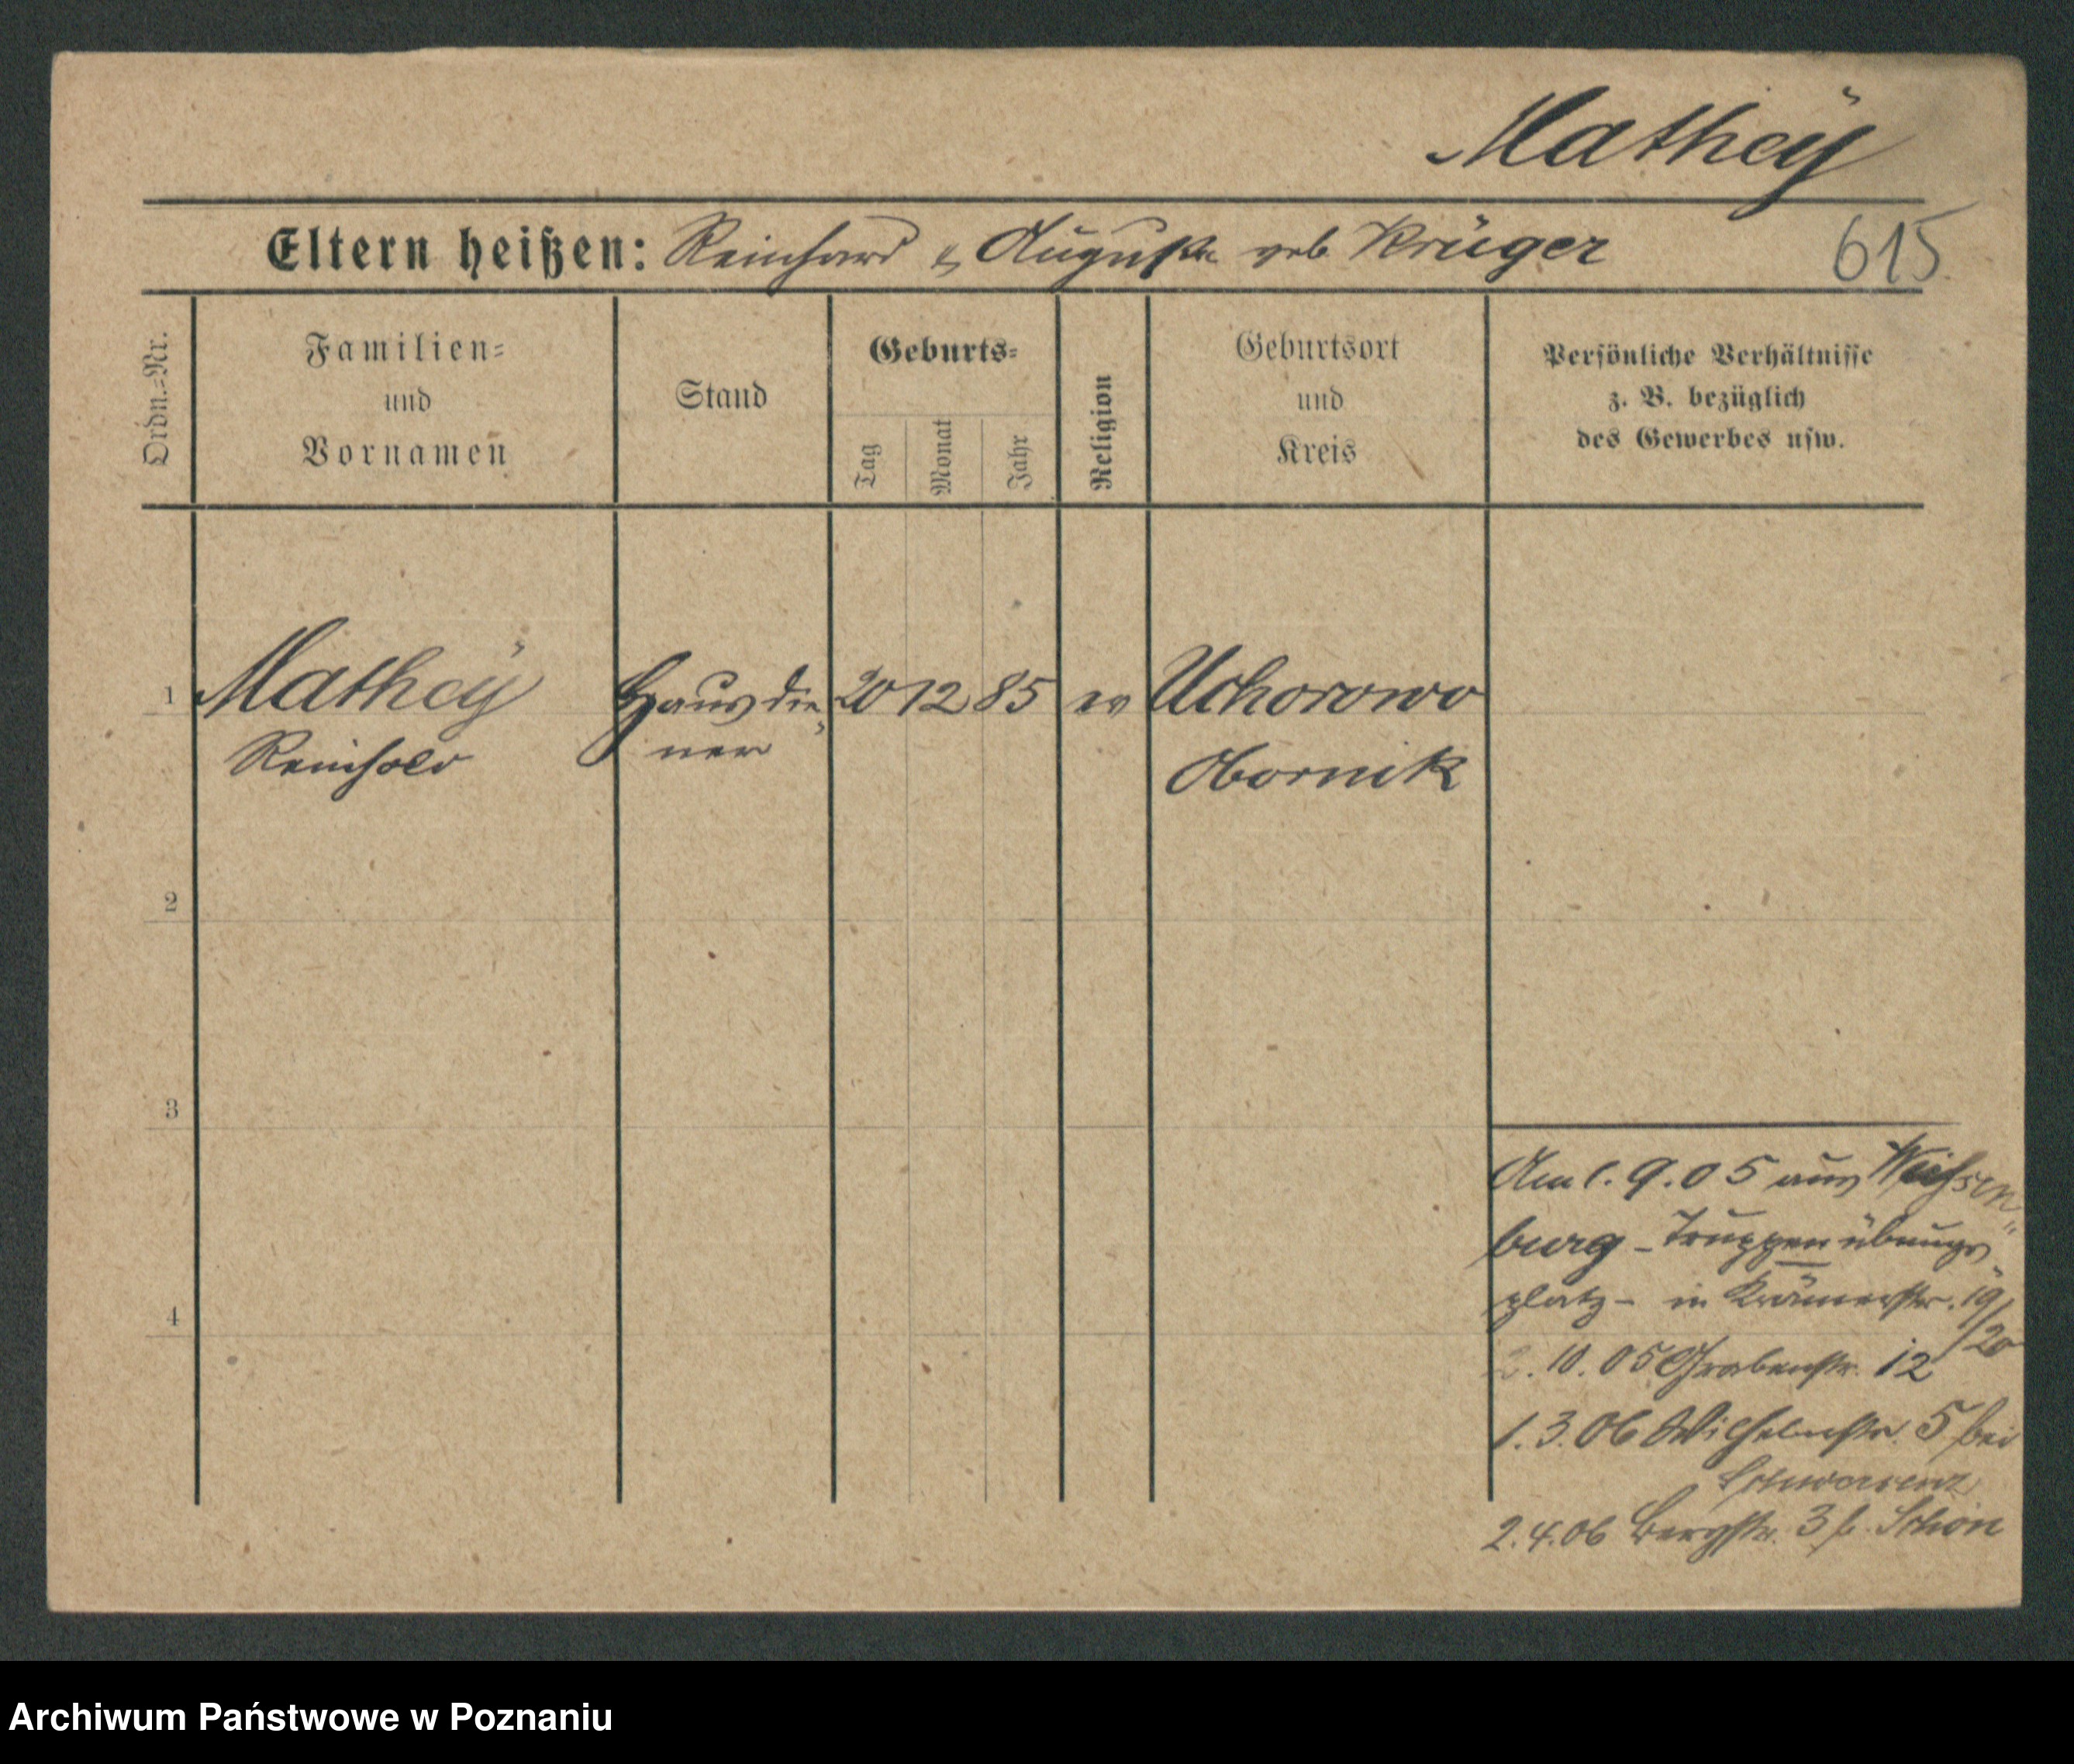 Matheÿ
Eltern heißen: Reinhard & Auguste geb Krüger
615
Ordn.=Nr.
Familien=
und
Vornamen
Stand
Geburts=
Tag
Monat
Jahr
Religion
Geburtsort
und
Kreis
Persönliche Verhältnisse
z. B. bezüglich
des Gewerbes usw.
1 Matheÿ Hausdie„ 20 12 85 ev Uchorowo
Reinhold ner Obornik
2
3
4
Am 1. 9. 05 aus Weissen„
burg - Truppenübungs„
platz - in Krämerstr. 19/20
2. 10. 05 Grabenstr. 12
1. 3. 06 Wilhelmstr. 5 bei
2. 4. 06 Bergstr. 3 b. Schön
Archiwum Państwowe w Poznaniu